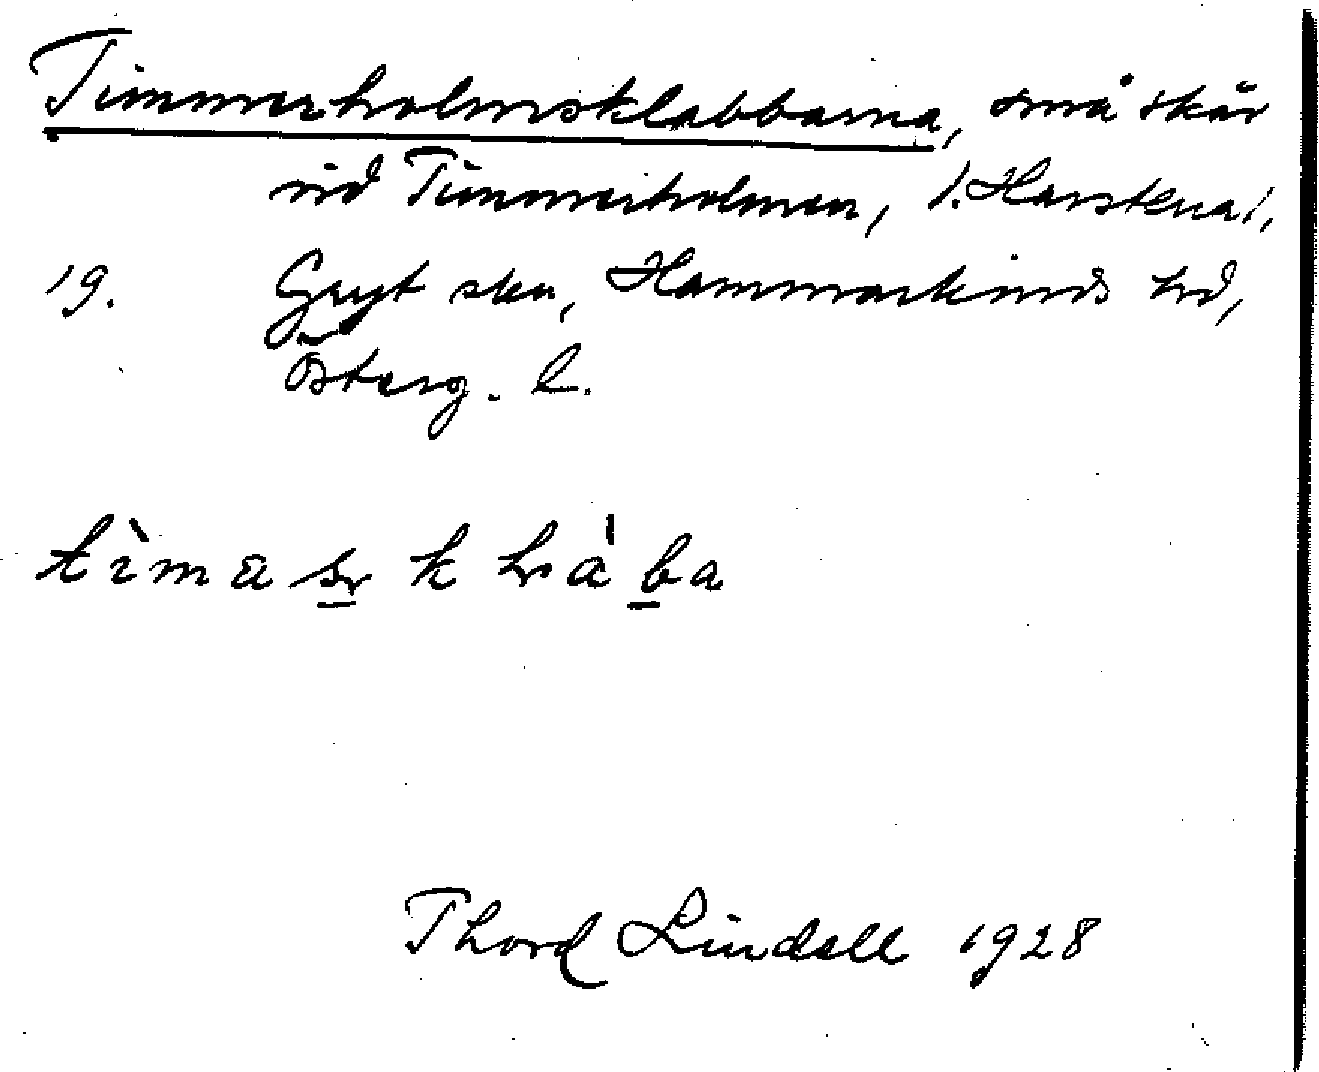 Timmerholmsklabbarna, små skär
vid Timmerholmen, /. Harstena/,
19. Gryt skn, Hammarkinds hd,
Österg. l.
Thord Lindell 1928